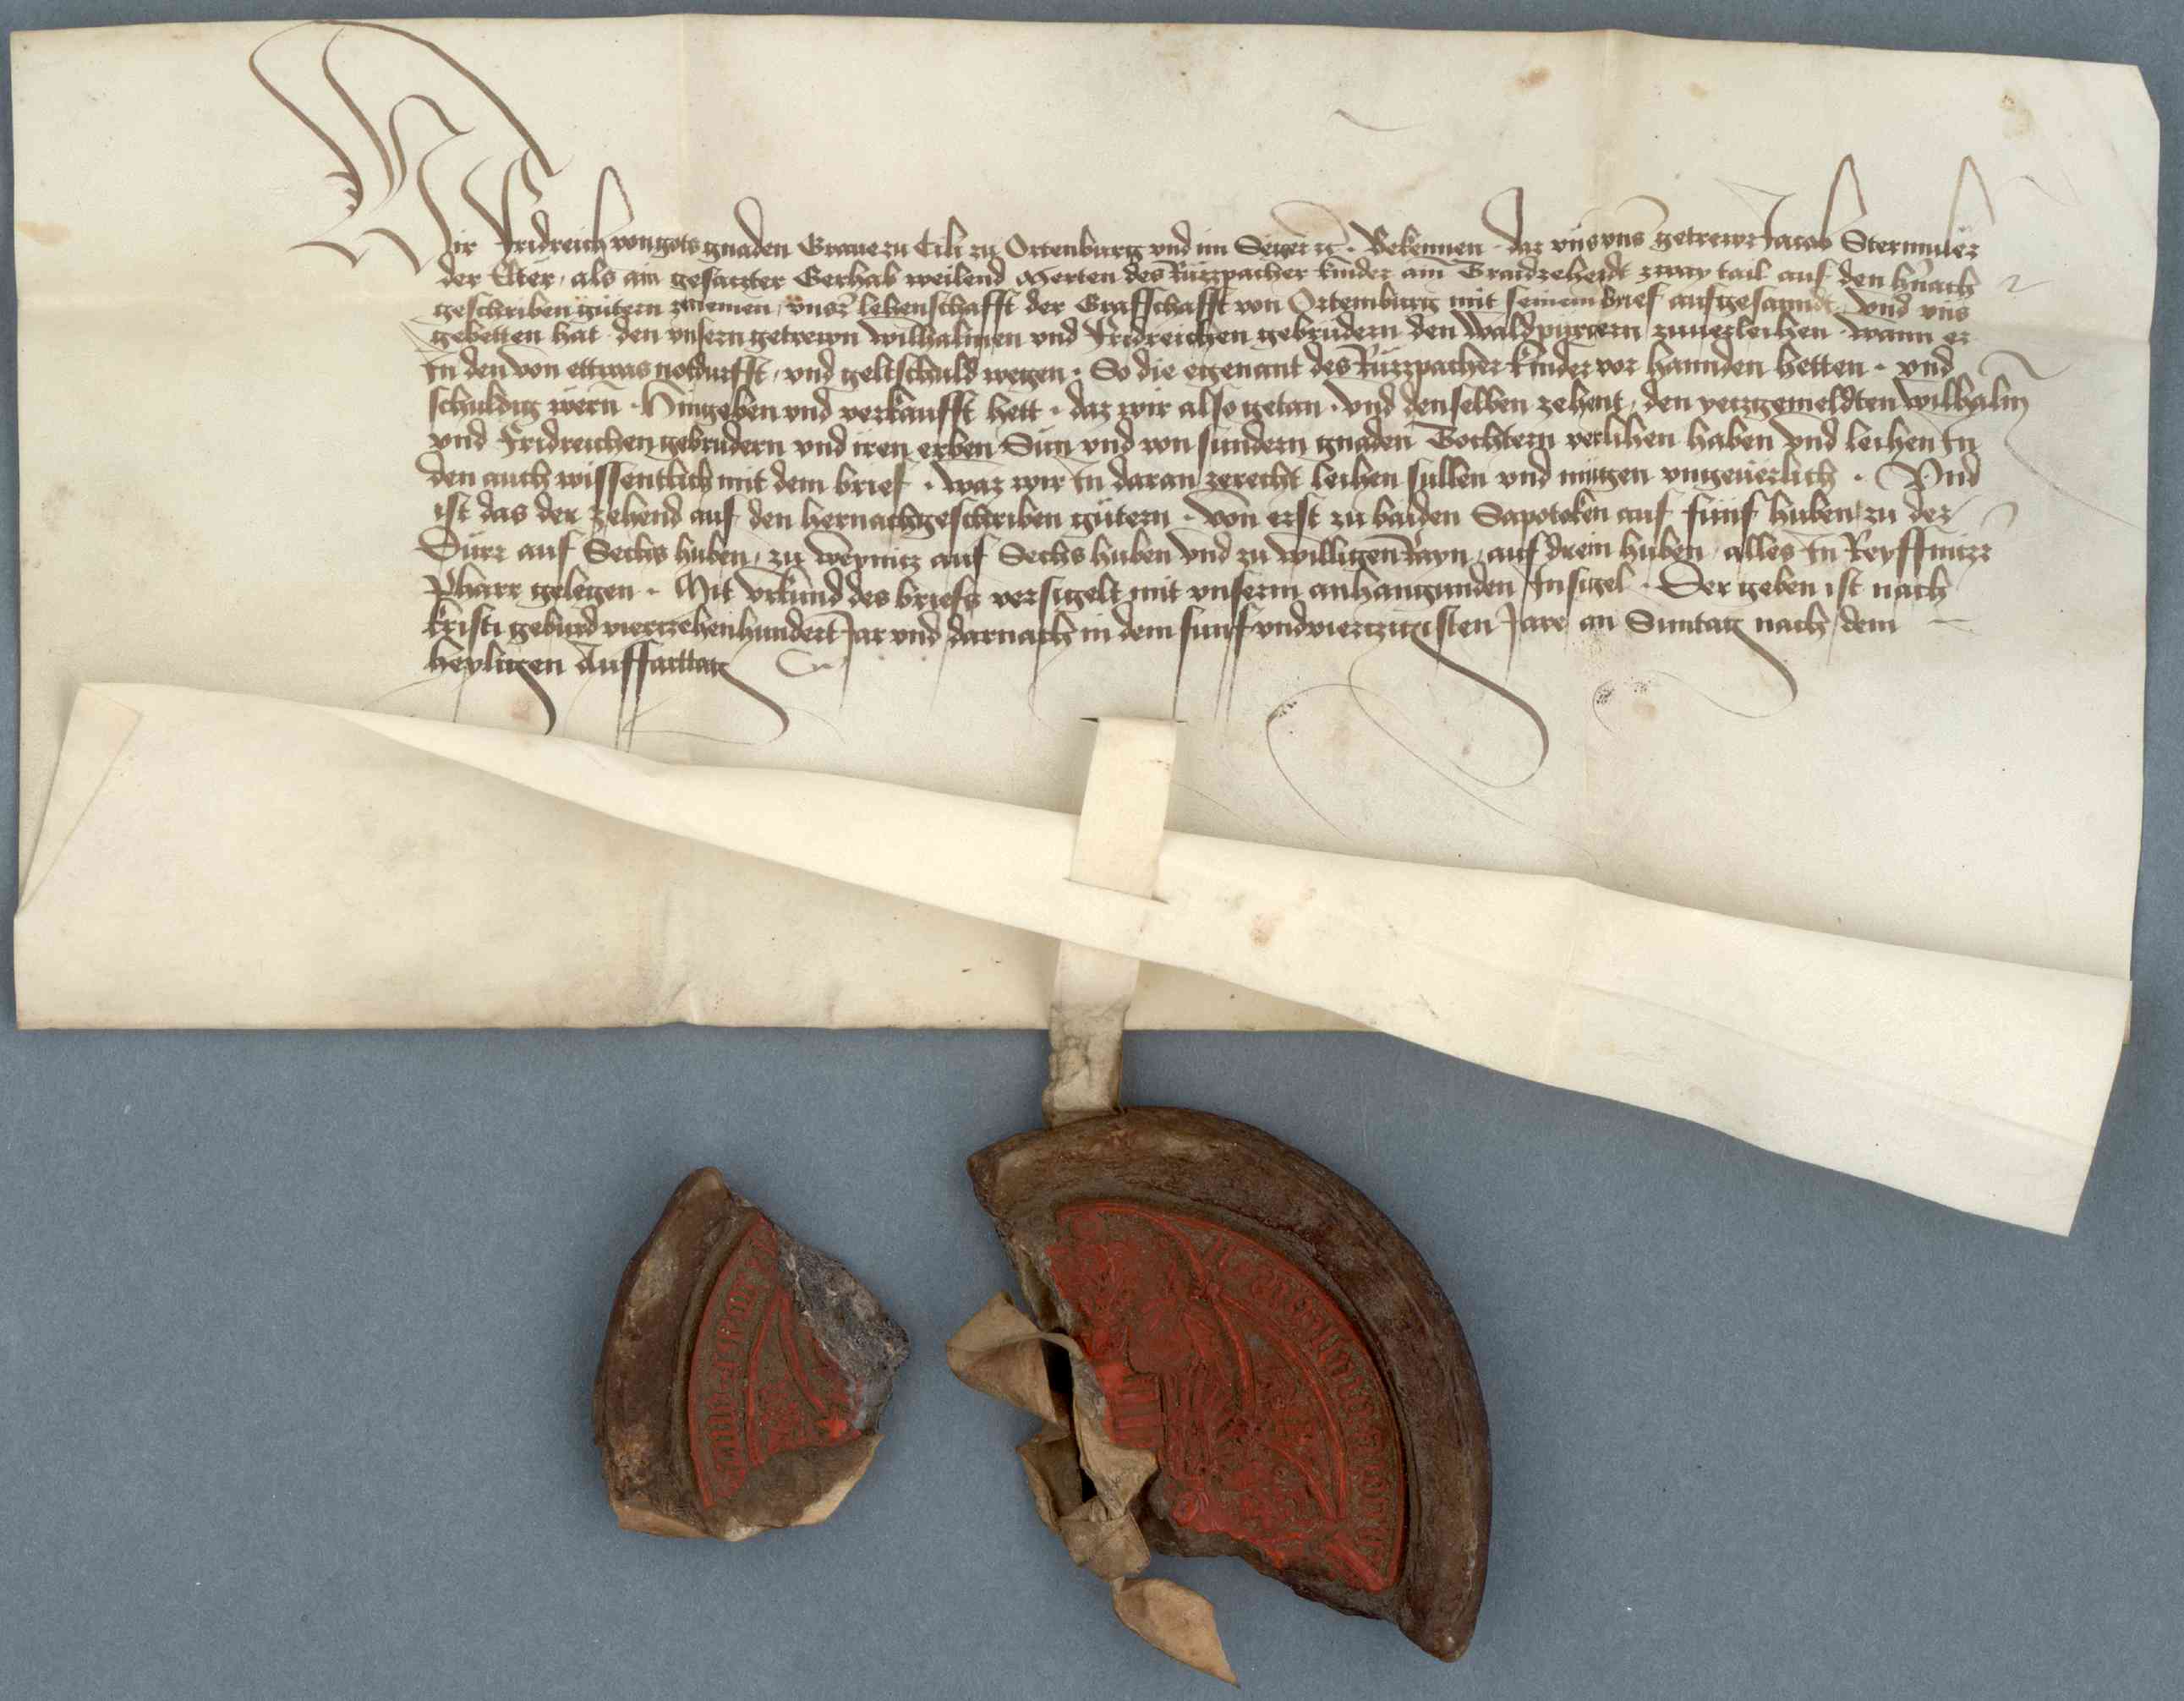 Wir Fridreich von gots gnaden Graue zu Cili zu Ortenburg vnd im Seger ꝛc. Bekennen daz vns vnser getrewr Jacob Stermulez
der Elter, als ain gesatzter Gerhab weilend Merten des Rüzzpacher kinder ain Traidzehendt zway tail auf den hnach
geschriben gütern zenemen, vnsr lehenschafft der Grafschafft von Ortemburg mit seinem brief aufgesanndt vnd vns
gebetten hat den vnsern getrewn Wilhalmen vnd Fridreichen gebrüdern den Waldpurgern zuuerleihen wann er
In den von ettwas notdurfft, vnd geltschuld wegen. So die egenant des Rüzzpacher kinder vor hannden hetten. vnd
schuldig wern. Hingeben vnd verkaufft hett. daz wir also getan. vnd denselben zehent, den yetzgemeldten Wilhalm
vnd Fridreichen gebrudern vnd iren erben Sün vnd von sundern gnaden Tochtern verlihen haben vnd leihen In
den auch wissentlich mit dem brief. waz wir In daran zerecht leihen sullen vnd mügen vngeuerlich. Vnd
ist das der zehend auf den hernachgeschriben gütern. Von erst zu baiden Sapotoken auf fünf huben, zu der
Dürr auf Sechs huben, zu weynitz auf Sechs huben vnd zu willigen Rayn, auf drein huben, alles In Reyffnitzr
Pharr gelegen. Mit vrkund des briefs versigelt mit vnserm anhangunden Insigel. Der geben ist nach
kristi geburd vierzehenhundert Jar vnd darnach in dem funfvndvierzigisten Jare an Suntag nach dem
heyligen Auffarttag